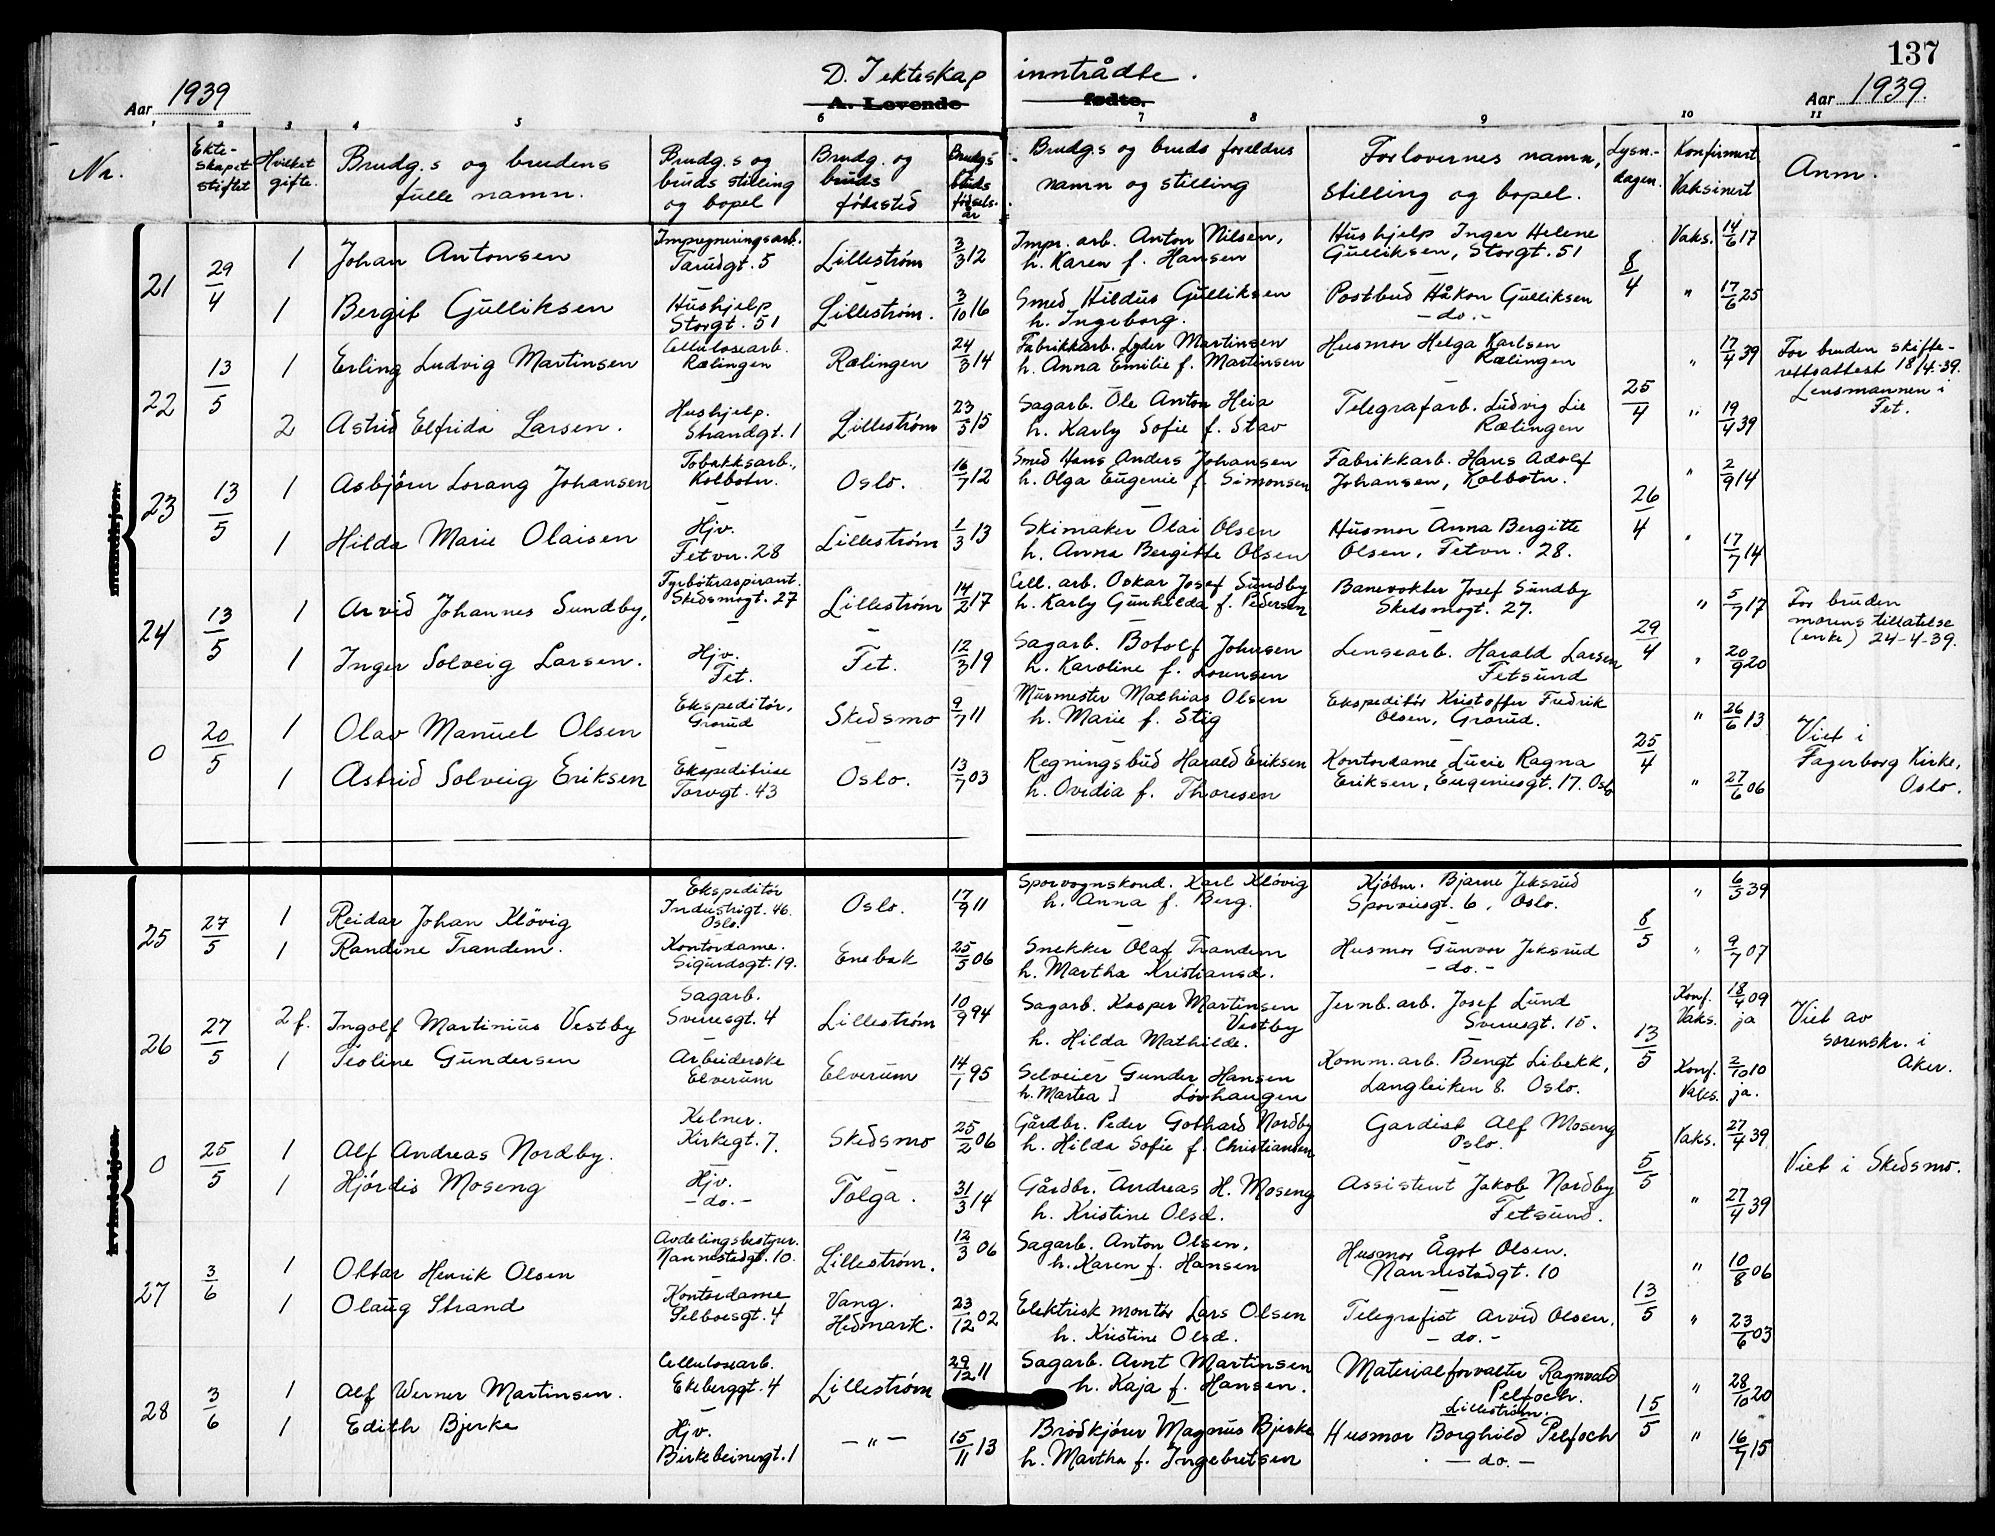 137
D. I ekteskap inntrådte.
Aar 1939
A. Levende fødte.
Aar 1939.
1 2 3 4 5 6 7 8 9 10 11
Nr.
Ekte-
skapet
stiftet
Hvilket
gifte.
Brudg.s og brudens
fulle namn.
Brudg.s og
bruds stilling
og bopel
Brudg. og
bruds
fødested
Brudg.s
bruds
fødsels-
år
Brudg.s og bruds foreldres
namn og stilling
Forlovernes namn,
stilling og bopel.
Lysn.-
dagen.
Konfirmert
Vaksinert
Anm.
mandkjøn.
21 29/4 1 Johan Antonsen
Impregneringsarb.
Tærudgt. 5
Lillestrøm 3/3 12
Impr. arb. Anton Nilsen,
h. Karen f. Hansen
Hushjelp Inger Helene
Gulliksen, Storgt. 51
8/4 Vaks. 14/6 17
1 Bergit Gulliksen
Hushjelp
Storgt. 51
Lillestrøm. 3/10 16
Smed Hildus Gulliksen
h. Ingeborg.
Postbud Håkon Gulliksen
- do. -
" 17/6 25
22 13/5 1 Erling Ludvig Martinsen
Cellulosearb.
Rælingen
Rælingen 24/3 14
Fabrikkarb. Lyder Martinsen
h. Anna Emilie f. Martinsen
Husmor Helga Karlsen
Rælingen
25/4 " 17/4 39
For bruden skifte-
rettsattest 18/4-39.
Lensmannen i
Fet.
2 Astrid Elfrida Larsen.
Hushjelp.
Strandgt. 1
Lillestrøm 23/5 15
Sagarb. Ole Anton Heia
h. Karly Sofie f. Stav
Telegrafarb. Ludvig Lie
Rælingen
" 19/4 39
23 13/5 1 Asbjørn Lorang Johansen
Tobakksarb.,
Kolbotn.
Oslo. 16/7 12
Smed Hans Anders Johansen
h. Olga Eugenie f. Simonsen
Fabrikkarb. Hans Adolf
Johansen, Kolbotn.
26/4 " 2/9 14
1 Hilda Marie Olaisen
Hjv.
Fetvn. 28
Lillestrøm 1/3 13
Skimaker Olai Olsen
h. Anna Bergitte Olsen
Husmor Anna Bergitte
Olsen, Fetvn. 28.
" 17/7 14
24 13/5 1 Arvid Johannes Sundby,
Fyrbøteraspirant.
Skedsmogt. 27
Lillestrøm 14/2 17
Cell. arb. Oskar Josef Sundby
h. Karly Gunhilda f. Pedersen
Banevokter Josef Sundby
Skedsmogt. 27.
29/4 " 5/7 17
For bruden
morens tillatelse
(enke) 24-4-39.
1 Inger Solveig Larsen.
Hjv.
Fet.
Fet. 12/3 19
Sagarb. Botolf Johnsen
h. Karoline f. Lorensen
Lensearb. Harald Larsen
Fetsund
" 20/9 20
0 20/5 1 Olav Manuel Olsen
Ekspeditør,
Grorud
Skedsmo 9/7 11
Murmester Mathias Olsen
h. Marie f. Stig
Ekspeditør Kristoffer Fredrik
Olsen, Grorud.
25/4 " 26/6 13
Viet i
Fagerborg Kirke,
Oslo.
1 Astrid Solveig Eriksen
Ekspeditrise
Torvgt. 43
Oslo. 13/7 03
Regningsbud Harald Eriksen
h. Ovidia f. Thoresen
Kontordame Lucie Ragna
Eriksen, Eugeniesgt. 17. Oslo
" 27/6 06
kvindekjøn.
25 27/5 1 Reidar Johan Kløvig
Ekspeditør
Industrigt. 46.
Oslo.
Oslo. 17/9 11
Sporvognskond. Karl Kløvig
h. Anna f. Berg.
Kjøbm. Bjarne Jeksrud
Sporveisgt. 6, Oslo.
8/5 " 6/5 39
1 Randine Trandem.
Kontordame.
Sigurdsgt. 19.
Enebak 25/5 06
Snekker Olaf Trandem
h. Martha Kristiansd.
Husmor Gunvor Jeksrud
- do. -
" 9/7 07
26 27/5 2 f. Ingolf Martinius Vestby
Sagarb.
Sverresgt. 4
Lillestrøm 10/9 94
Sagarb. Kasper Martinsen
Vestby
h. Hilda Mathilde.
Jernb. arb. Josef Lund
Sverresgt. 15.
13/5 Konf. 18/4 09
Vaks. ja
Viet av
sorenskr. i
Aker.
1 Teoline Gundersen
Arbeiderske
Elverum
Elverum 14/1 95
Selveier Gunder Hansen
h. Martea ] Løvhaugen
Komm. arb. Bengt Libekk,
Langleiken 8. Oslo.
Konf. 2/10 10
Vaks. ja.
0 25/5 1 Alf Andreas Nordby.
Kelner.
Kirkegt. 7.
Skedsmo 25/2 06
Gårdbr. Peder Gothard Nordby
h. Hilda Sofie f. Christiansen
Gardist Alf Moseng
Oslo.
5/5 Vaks. 27/4 39
Viet i Skedsmo.
1 Hjørdis Moseng
Hjv.
- do. -
Tolga. 31/3 14
Gårdbr. Andreas H. Moseng
h. Kristine Olsd.
Assistent Jakob Nordby
Fetsund.
" 27/4 39
27 3/6 1 Ottar Henrik Olsen
Avdelingsbestyrer.
Nannestadgt. 10.
Lillestrøm. 12/3 06
Sagarb. Anton Olsen,
h. Karen f. Hansen
Husmor Ågot Olsen.
Nannestadgt. 10
13/5 " 10/8 06
1 Olaug Strand
Kontordame
Selboesgt. 4
Vang.
Hedmark. 23/12 02
Elektrisk montør Lars Olsen
h. Kristine Olsd.
Telegrafist Arvid Olsen.
- do. -
" 23/6 03
28 3/6 1 Alf Werner Martinsen.
Cellulosearb.
Ekeberggt. 4
Lillestrøm 29/12 11
Sagarb. Arnt Martinsen
h. Kaja f. Hansen.
Materialforvalter Ragnvald
Pelfoch.
Lillestrøm.
15/5 " 28/10 20
1 Edith Bjerke
Hjv.
Birkebeinergt. 1
- " - 15/11 13
Brødkjører Magnus Bjerke
h. Martha f. Ingebretsen
Husmor Borghild Pelfoch
- do. -
" 16/7 15